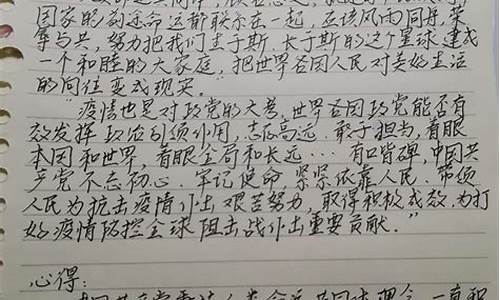 国家的前途命运都联系在一起，应该风雨同舟，荣
辱与共，努力把我们生于斯、长于斯的这个星球建成
一个和睦的大家庭，把世界各国人民对美好生活
的向往变成现实。
"疫情也是对政党的大考，世界各国政党能否有
效发挥政治引领作用，志存高远、敢于担当，着眼
本国和世界，着眼全局和长远……有口皆碑，中国共
产党不忘初心、牢记使命，紧紧依靠人民、带领
人民为抗击疫情作出艰苦努力，取得积极成效，为打
好疫情防控全球阻击战作出重要贡献。"
心得：